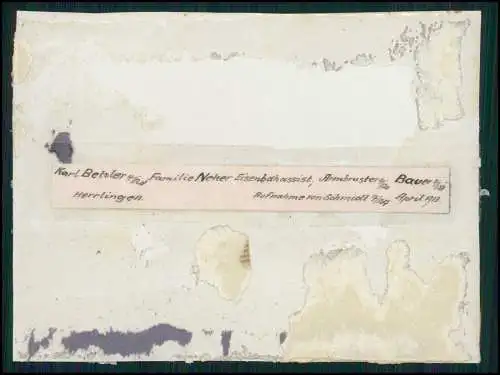 Karl Betzler Familie Neher Eisenbahassist, Armbruster Bauer
Herrlingen. Aufnahme von Schmidt April 1911